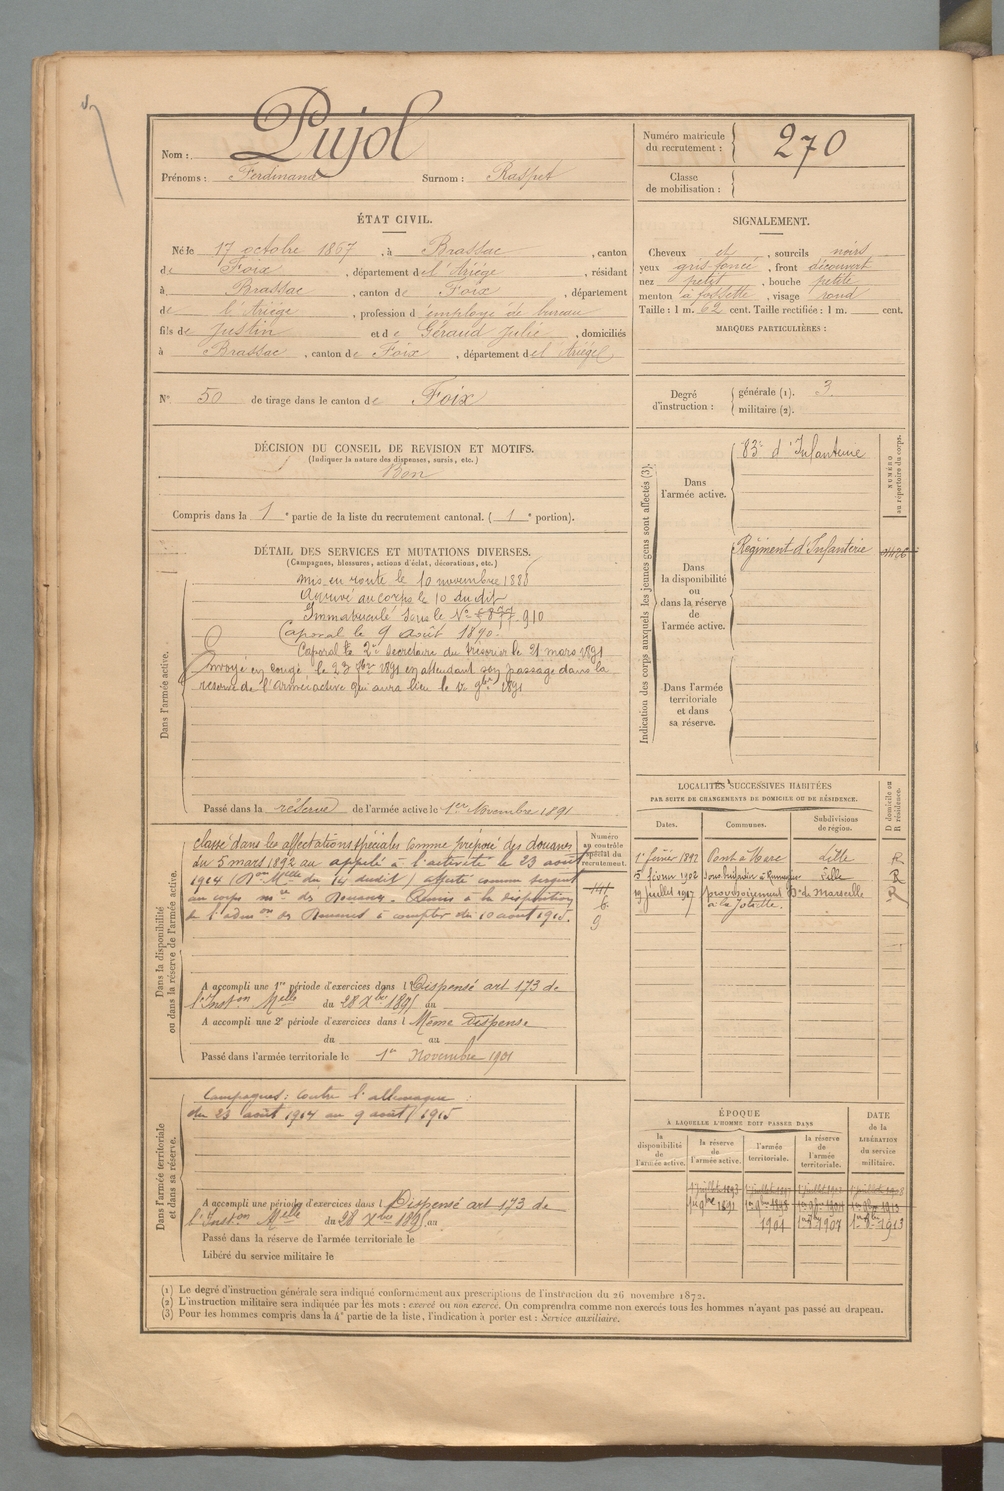 Pujol
Nom :
Prénoms : Ferdinand Surnom : Raspet
Numéro matricule du recrutement : 270
Classe de mobilisation :
ÉTAT CIVIL.
Né le 17 octobre 1867, à Brassac, canton
de Foix, département de l'Ariège, résidant
à Brassac, canton de Foix, département
de l'Ariège, profession d'employé de bureau
fils de Justin et de Géraud Julie, domiciliés
à Brassac, canton de Foix, département de l'Ariège
N° 50 de tirage dans le canton de Foix
SIGNALEMENT.
Cheveux et, sourcils noirs
yeux gris foncé, front découvert
nez petit, bouche petite
menton à fossette, visage rond
Taille : 1 m. 62 cent. Taille rectifiée : 1 m. cent.
MARQUES PARTICULIÈRES :
Degré d'instruction : générale (1). 3
militaire (2).
DÉCISION DU CONSEIL DE REVISION ET MOTIFS.
(Indiquer la nature des dispenses, sursis, etc.)
Bon
Compris dans la 1e partie de la liste du recrutement cantonal. (1e portion).
DÉTAIL DES SERVICES ET MUTATIONS DIVERSES.
(Campagnes, blessures, actions d'éclat, décorations, etc.)
Dans l'armée active.
mis en route le 10 novembre 1888
Arrivé au corps le 10 du dit
Immatriculé sous le N° 910
Caporal le 9 Août 1890.
Caporal le 2e Secrétaire du trésorier le 21 mars 1891
Envoyé en congé, le 23 7bre 1891 en attendant son passage dans la
réserve de l'armée active qui aura lieu le 1er 9bre 1891
Passé dans la réserve de l'armée active le 1er Novembre 1891
Indication des corps auxquels les jeunes gens sont affectés (3).
NUMÉRO au répertoire du corps.
Dans l'armée active.
83e d'Infanterie
Dans la disponibilité ou dans la réserve de l'armée active.
Régiment d'Infanterie
Dans l'armée territoriale et dans sa réserve.
LOCALITÉS SUCCESSIVES HABITÉES
PAR SUITE DE CHANGEMENTS DE DOMICILE OU DE RÉSIDENCE.
Dates. Communes. Subdivisions de région. D domicile ou R résidence.
1er février 1892 Pont à Marc Lille R
5 février 1902 Sous brigadier à Lille R
19 juillet 1917 Bes de Marseille R
à la Joliette.
Dans la disponibilité ou dans la réserve de l'armée active.
Numéro au contrôle spécial du recrutement.
Classé dans les affectations spéciales comme préposé des douanes
du 5 mars 1892 au appelé à l'activité le 23 août
1914 (Non Melle du 14 dudit) affecté comme sergent
au corps mre des Douanes. Remis à la disposition
de l'admon des Douanes à compter du 10 août 1915.
9
A accompli une 1re période d'exercices dans l Dispensé art 173 de
l'Inston Melle du 28 Xbre 1895 au
A accompli une 2e période d'exercices dans l Même Dispense
du au
Passé dans l'armée territoriale le 1er Novembre 1901
Dans l'armée territoriale et dans sa réserve.
Campagnes : contre l'allemagne :
du 23 août 1914 au 9 août 1915
A accompli une période d'exercices dans l Dispensé art 173 de
l'Inston Melle du 28 Xbre 1895, au
Passé dans la réserve de l'armée territoriale le
Libéré du service militaire le
ÉPOQUE
À LAQUELLE L'HOMME DOIT PASSER DANS
DATE de la LIBÉRATION du service militaire.
la disponibilité de l'armée active. la réserve de l'armée active. l'armée territoriale. la réserve de l'armée territoriale.
1er juillet 1893
1er 9bre 1891
1901
1907 1913
(1) Le degré d'instruction générale sera indiqué conformément aux prescriptions de l'instruction du 26 novembre 1872.
(2) L'instruction militaire sera indiquée par les mots : exercé ou non exercé. On comprendra comme non exercés tous les hommes n'ayant pas passé au drapeau.
(3) Pour les hommes compris dans la 4e partie de la liste, l'indication à porter est : Service auxiliaire.